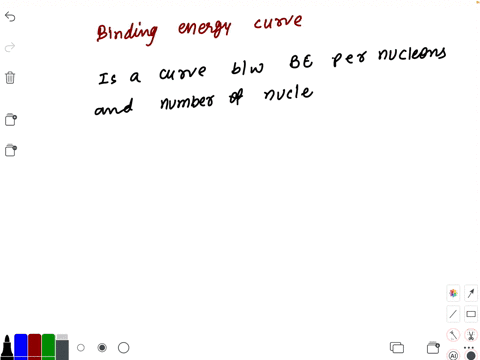 Binding energy curve
Is a curve b/w BE per nucleons
and number of nucle
AI